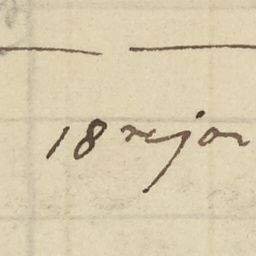 18 rejor